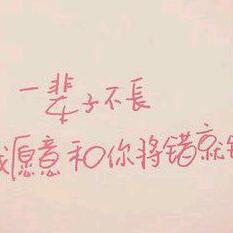 一辈子不長
我愿意和你将错就